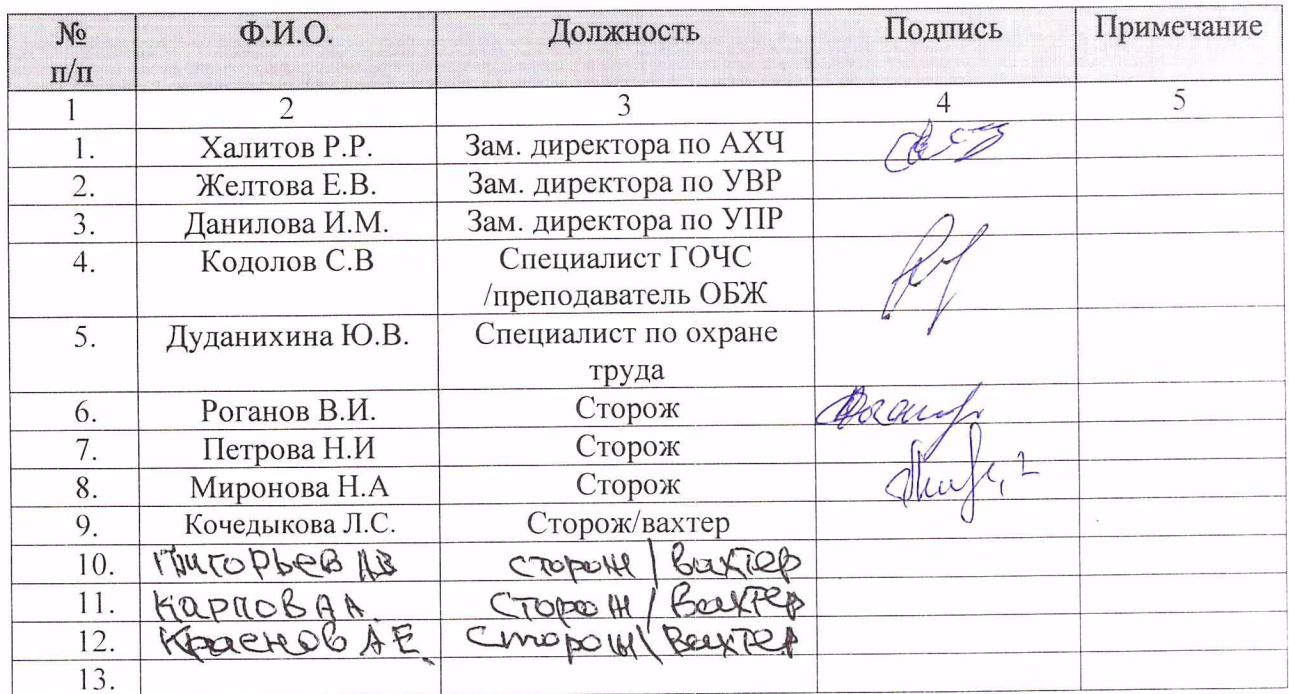 № п/п Ф.И.О. Должность Подпись Примечание
1 2 3 4 5
1. Халитов Р.Р. Зам. директора по АХЧ
2. Желтова Е.В. Зам. директора по УВР
3. Данилова И.М. Зам. директора по УПР
4. Кодолов С.В Специалист ГОЧС
/преподаватель ОБЖ
5. Дуданихина Ю.В. Специалист по охране
труда
6. Роганов В.И. Сторож
7. Петрова Н.И Сторож
8. Миронова Н.А Сторож
9. Кочедыкова Л.С. Сторож/вахтер
10. АВ сторож/вахтер
11. Карпов А А. Сторож/Вахтер
12. А Е. Сторож\Вахтер
13.